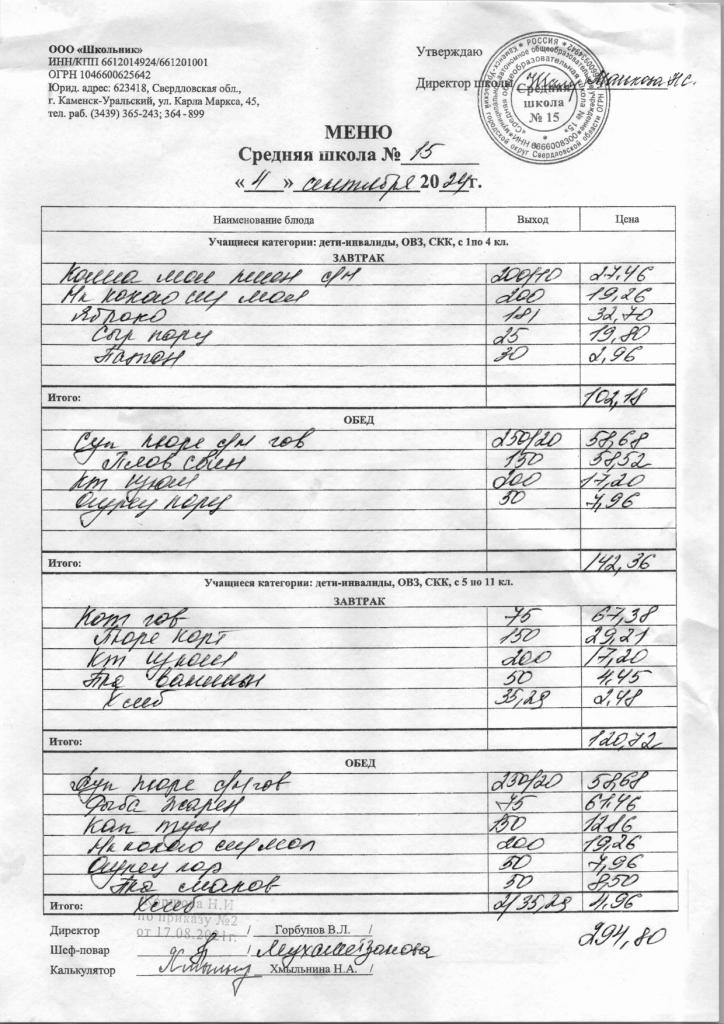 ООО «Школьник»
ИНН/КПП 6612014924/661201001
ОГРН 1046600625642
Юрид. адрес: 623418, Свердловская обл.,
г. Каменск-Уральский, ул. Карла Маркса, 45,
тел. раб. (3439) 365-243; 364 - 899
Утверждаю
Директор школы
Средняя
школа
№ 15
МЕНЮ
Средняя школа № 15
« 4 » сентября 2024г.
Наименование блюда Выход Цена
Учащиеся категории: дети-инвалиды, ОВЗ, СКК, с 1по 4 кл.
ЗАВТРАК
Каша мол пшен с/м 200/10 27,46
Нк какао сгу мол 200 19,26
Яблоко 181 32,70
Сыр порц 25 19,80
Батон 30 2,96
Итого: 102,18
ОБЕД
Суп пюре с/м гов 250/20 58,68
Плов свин 150 58,52
Кт изюм 200 17,20
Огурец порц 50 7,96
Итого: 142,36
Учащиеся категории: дети-инвалиды, ОВЗ, СКК, с 5 по 11 кл.
ЗАВТРАК
Кот гов 75 67,38
Пюре карт 150 29,21
Кт изюм 200 17,20
Пка ванильн 50 4,45
Хлеб 35,29 2,48
Итого: 120,72
ОБЕД
Суп пюре с/м гов 250/20 58,68
Рыба жарен 75 61,46
Кап туш 150
Нк какао сгу мол 200 19,26
Огурец пор 50 7,96
Пка маков 50 8,50
Итого: Хлеб 2/35,29 4,96
Н.И
по приказу №2
от 17.08.2021г.
294,80
Директор / Горбунов В.Л. /
Шеф-повар / Мухаметзанова
Калькулятор / Хмыльнина Н.А. /